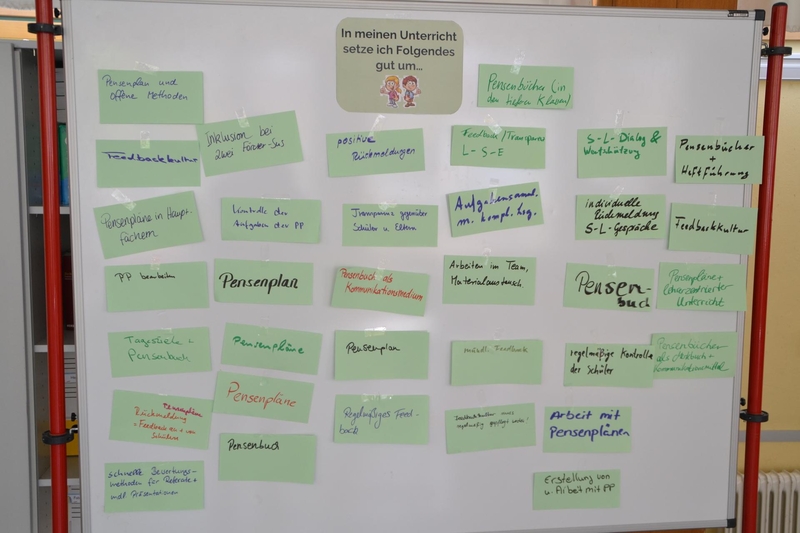 In meinen Unterricht
setze ich Folgendes
gut um...
Pensenbücher (in
den Klassen)
Pensenplan und
offene Methoden
Inklusion bei
zwei Förder-SuS
positive
Rückmeldungen
Feedback/Transparenz
L-S-E
S-L-Dialog &
Wertschätzung
Pensenbücher
+
Heftführung
Feedbackkultur
Pensenpläne in Haupt-
fächern
Kontrolle der
Aufgaben der PP
Transparenz gegenüber
Schüler u. Eltern
Aufgabensamml.
m. kompl. Lsg.
individuelle
Rückmeldung
S-L-Gespräche
Feedbackkultur
PP bearbeiten
Pensenplan
Pensenbuch als
Kommunikationsmedium
Arbeiten im Team,
Materialaustausch
Pensen-
buch
Pensenpläne +
lehrerzentrierter
Unterricht
Tagesziele +
Pensenbuch
Pensenpläne
Pensenplan
mündl. Feedback
regelmäßige Kontrolle
der Schüler
Pensenbücher
als Merkbuch +
Kommunikationsmittel
Pensenpläne
Rückmeldung
+ Feedback an + von
Schülern
Pensenpläne
Regelmäßiges Feed-
back
regelmäßig gepflegt werden
Arbeit mit
Pensenplänen
Pensenbuch
schnelle Bewertungs-
methoden für Referate +
mdl. Präsentationen
Erstellung von
u. Arbeit mit PP